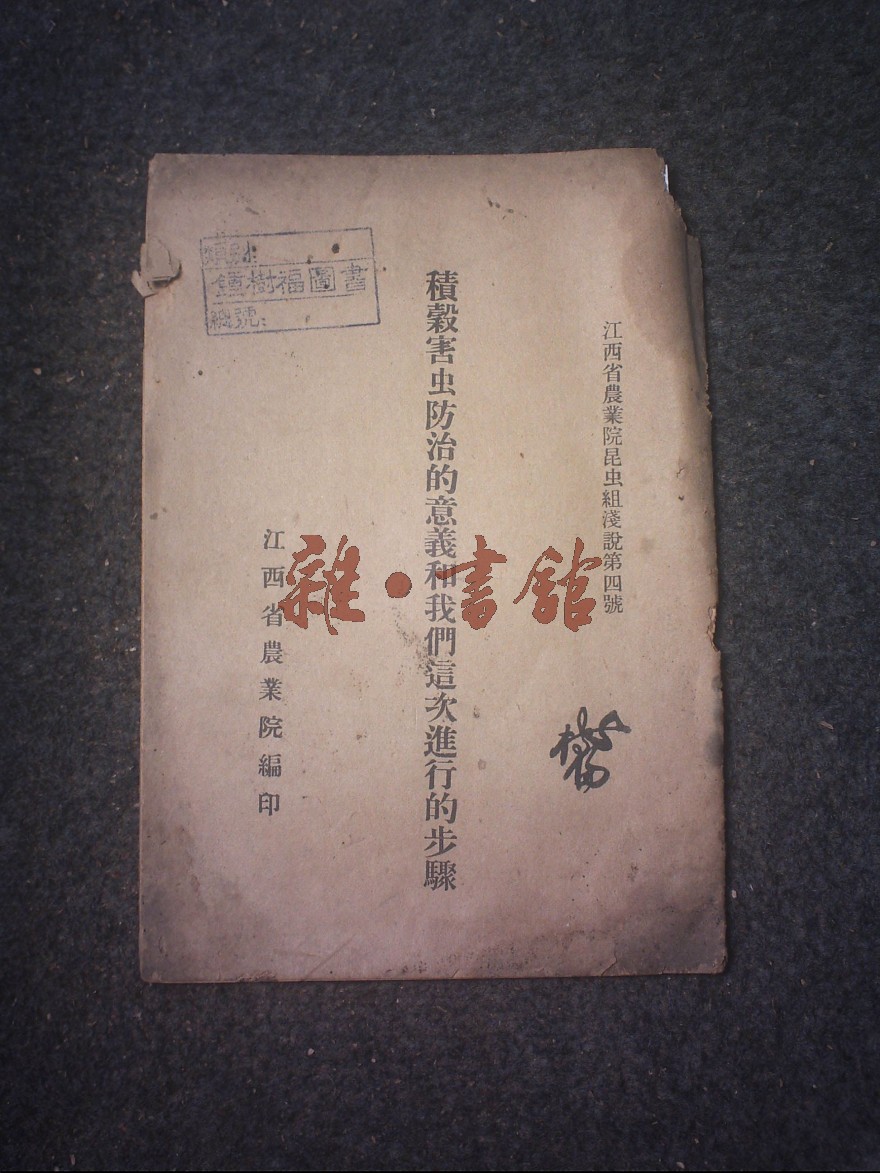 江西省農業院昆虫組淺說第四號
積穀害虫防治的意義和我們這次進行的步驟
江西省農業院編印
類別:
鍾樹福圖書
總號:
雜·書館